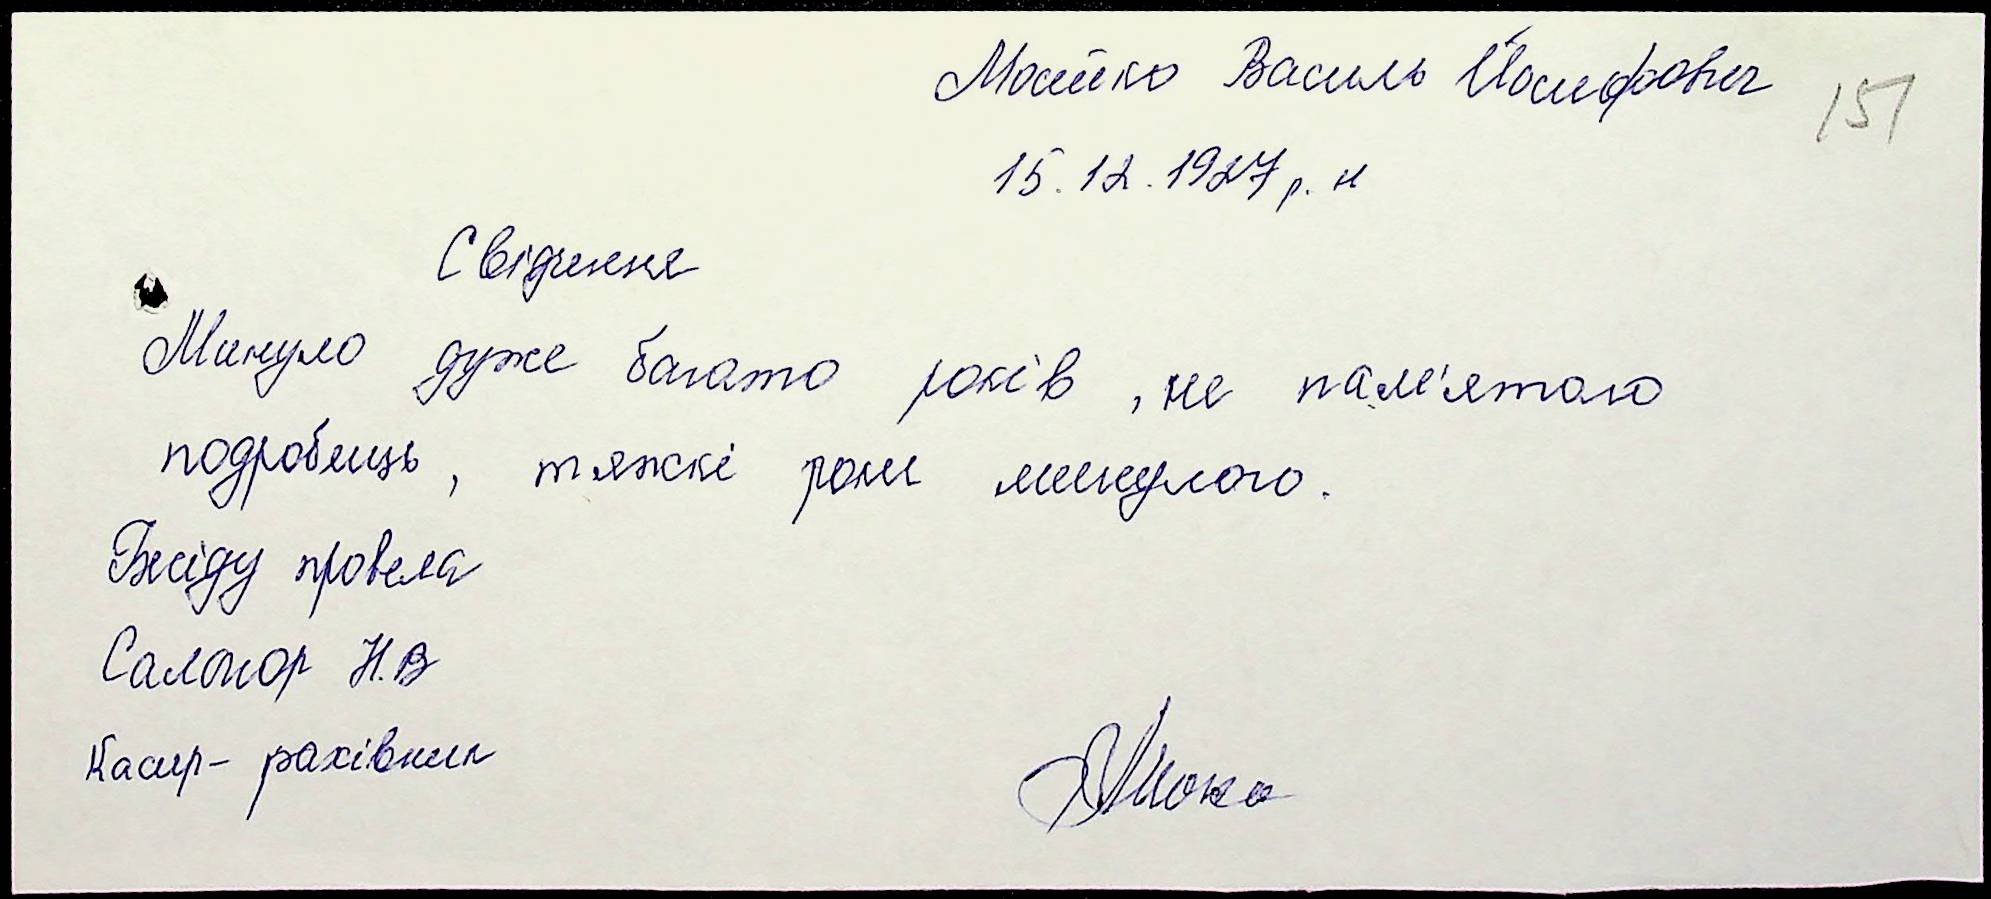 Василь Йосифович
151
15.12.1927 р. н
Свідчення
Минуло дуже багато років, не пам'ятаю
подробиць, тяжкі роки минулого.
Бесіду провела
Н.В
Касир - рахівник